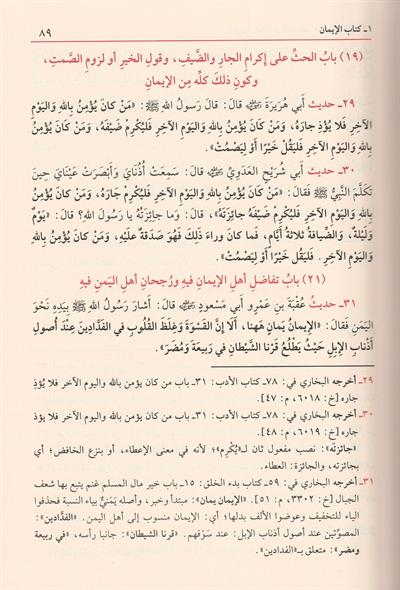 ١ـ كتاب الإيمان
٨٩
(١٩) بابُ الحثِّ على إكرامِ الجارِ والضَّيفِ، وقولِ الخيرِ أو لزومِ الصَّمتِ،
وكونِ ذلكَ كلِّه مِن الإيمانِ
٢٩ـ حديث أَبي هُرَيرَةَ ﷺ قالَ: قالَ رَسولُ اللهِ ﷺ: «مَنْ كانَ يُؤْمِنُ بِاللهِ وَاليَوْمِ
الآخِرِ فَلا يُؤْذِ جارَهُ، وَمَنْ كانَ يُؤْمِنُ بِاللهِ وَاليَوْمِ الآخِرِ فَلْيُكْرِمْ ضَيْفَهُ، وَمَنْ كانَ يُؤْمِنُ
بِاللهِ وَاليَوْمِ الآخِرِ فَلْيَقُلْ خَيْرًا أَوْ لِيَصْمُتْ».
٣٠ـ حديث أَبي شُرَيْحٍ العَدَوِيِّ قالَ: سَمِعَتْ أُذُنَايَ وَأَبْصَرَتْ عَيْنَايَ حِينَ
تَكَلَّمَ النَّبِيُّ ﷺ فَقالَ: «مَنْ كانَ يُؤْمِنُ بِاللهِ وَاليَوْمِ الآخِرِ فَلْيُكْرِمْ جَارَهُ، وَمَنْ كانَ يُؤْمِنُ
بِاللهِ وَاليَوْمِ الآخِرِ فَلْيُكْرِمْ ضَيْفَهُ جائِزَتَهُ»، قَالَ: وَما جائِزَتُهُ يا رَسولَ اللهِ؟ قالَ: «يَوْمٌ
وَلَيْلَةٌ، وَالضِّيافَةُ ثَلاثَةُ أَيَّامٍ، فَما كانَ وَراءَ ذَلِكَ فَهُوَ صَدَقَةٌ عَلَيْهِ، وَمَنْ كانَ يُؤْمِنُ بِاللهِ
وَاليَوْمِ الآخِرِ . فَلْيَقُلْ خَيْرًا أَوْ لِيَصْمُتْ».
(٢١) بابُ تفاضلِ أهلِ الإيمانِ فيهِ ورُجحانِ أهلِ اليَمنِ فيهِ
٣١ـ حديثُ عُقْبَةَ بنِ عَمْرٍو أَبي مَسْعودٍ قالَ: أَشارَ رَسُولُ اللهِ ﷺ بِيَدِهِ نَحْوَ
اليَمَنِ فَقالَ: «الإِيمَانُ يَمَانٍ هَهُنا، أَلا إِنَّ القَسْوَةَ وَغِلَظَ القُلُوبِ فِي الفَدَّادِينَ عِنْدَ أُصُولِ
أَذْنابِ الإِبِلِ حَيْثُ يَطْلُعُ قَرْنا الشَّيْطانِ فِي رَبِيعَةَ وَمُضَرَ».
٢٩ـ أخرجه البخاري في: ٧٨ـ كتاب الأدب: ٣١ـ باب من كان يؤمن بالله واليوم الآخر فلا يُؤذِ
جاره [خ: ٦٠١٨، م: ٤٧].
٣٠ـ أخرجه البخاري في: ٧٨ـ كتاب الأدب: ٣١ـ باب من كان يؤمن بالله واليوم الآخر فلا يؤذِ
جاره [خ: ٦٠١٩، م: ٤٨].
«جائزتَه»: نصب مفعول ثان لـ«يُكْرِم»؛ لأنه في معنى الإعطاء، أو بنزع الخافض؛ أي
بجائزته، والجائزة: العطاء.
٣١ـ أخرجه البخاري في: ٥٩ـ كتاب بدء الخلق: ١٥ـ باب خير مال المسلم غنم يتبع بها شعف
الجبال [خ: ٣٣٠٢، م: ٥١]. «الإيمان يمان»: مبتدأ وخبر، وأصله يَمَنيٌّ بياء النسبة فحذفوا
الياء للتخفيف وعوضوا الألف بدلها؛ أي: الإيمان منسوب إلى أهل اليمن. «الفدّادين»:
المصوِّتين عند أصول أذناب الإبل: عند سَوْقهم. «قرنا الشيطان»: جانبا رأسه، «في ربيعة
ومضر»: متعلق بـ«الفدادين».